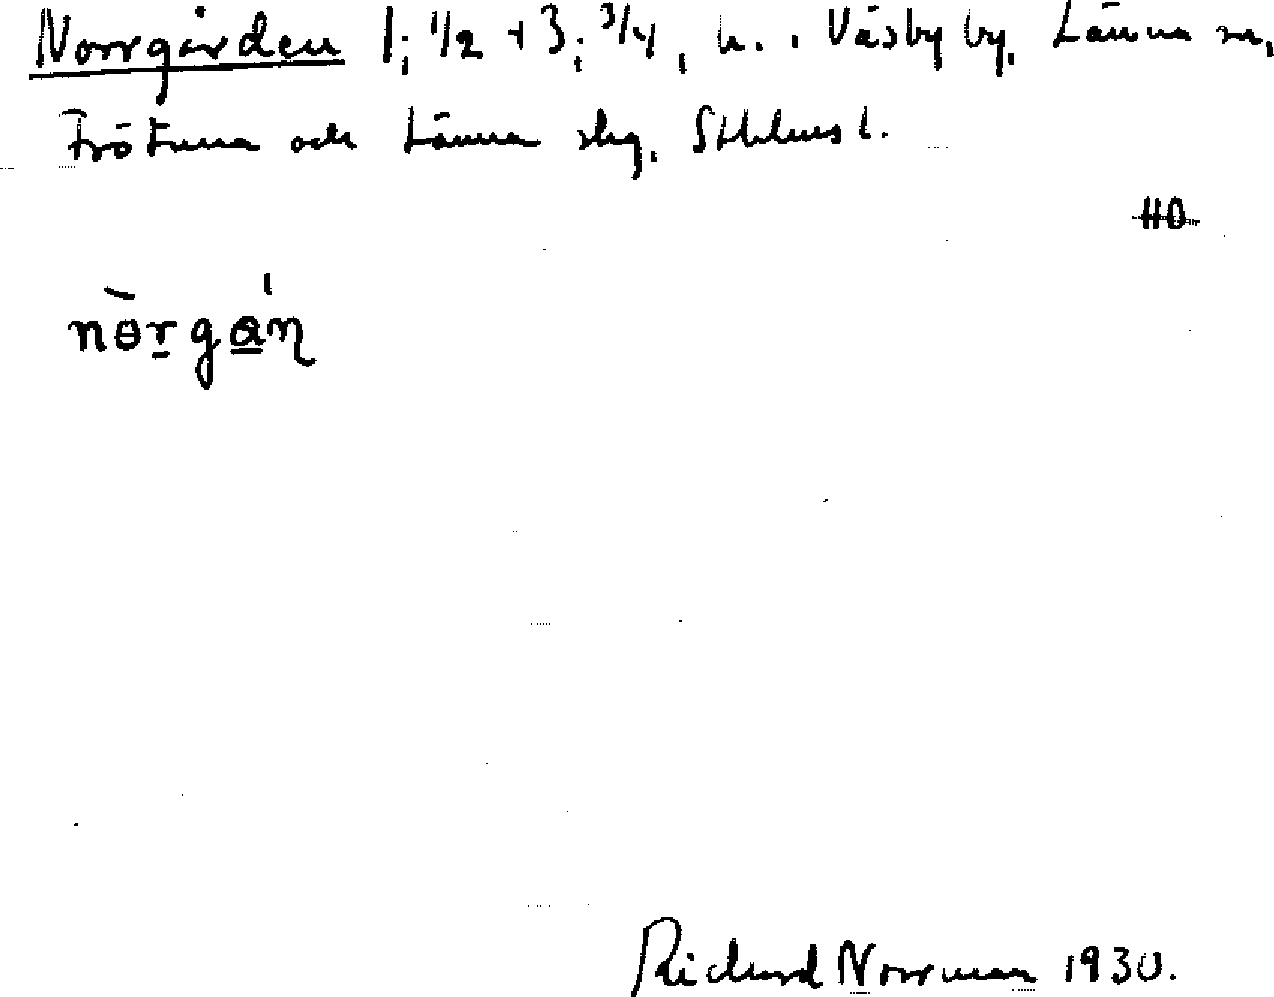 Norrgården 1; 1/2 + 3; 3/4, h. i Väsby by, Länna sn,
Frötuna och Länna slg. Sthlms l.
HO
nɵ̀rgɑ́ɳ
Richard Norrman 1930.